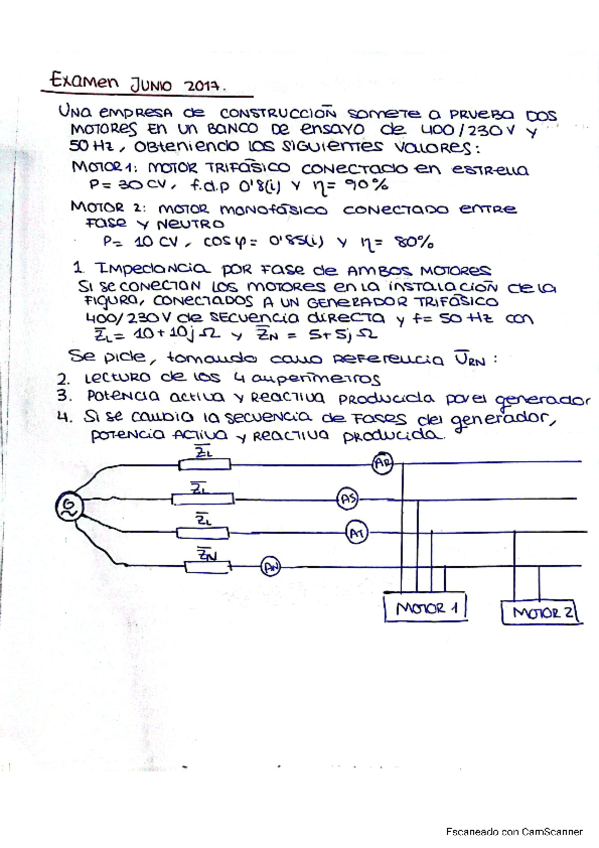 Examen JUNIO 2017.
UNA EMPRESA de CONSTRUCCIÓN SOMETE A PRUEBA DOS
MOTORES EN UN BANCO DE ENSAYO de 400/230V y
50 HZ, OBTENIENDO LOS SIGUIENTES VALORES:
MOTOR 1: MOTOR TRIFÁSICO CONECTADO en ESTRELLA
P= 30 CV, f.d.p 0'8(i) Y η= 90%
MOTOR 2: MOTOR MONOFÁSICO CONECTADO ENTRE
FASE Y NEUTRO
P= 10 CV, COS φ= 0'85(i) y η= 80%
1. IMPEDANCIA POR FASE de AMBOS MOTORES
SI SE CONECTAN LOS MOTORES EN LA INSTALACIÓN DE LA
FIGURA, CONECTADOS A UN GENERADOR TRIFÁSICO
400/230V de SECUENCIA DIRECTA y f= 50 Hz con
Z̅L= 10+10j Ω y Z̅N = 5+5j Ω
Se pide, tomando como REFERENCIA U̅RN:
2. LECTURO de los 4 amperímetros
3. POTENCIA activa y REACTIVA PRODUCIDA por el generador
4. Si se cambia la SECUENCIA de FASES del generador,
POTENCIA ACTIVA y REACTIVA PRODUCIDA.
Z̅L
AR
Z̅L
AS
G
Z̅L
AT
Z̅N
AN
MOTOR 1
MOTOR 2
Escaneado con CamScanner